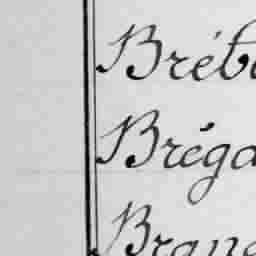 Bréb
Bréga
Bran